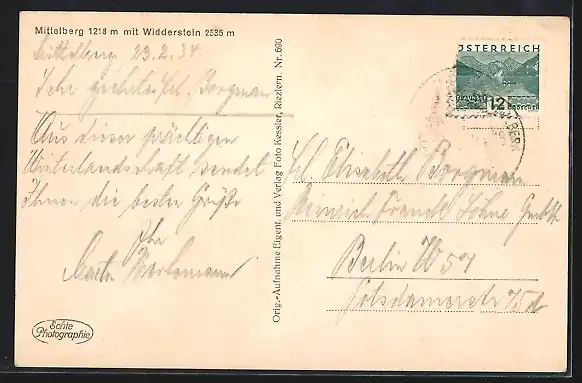 Mittelberg 1218 m mit Widderstein 2535 m
Mittelberg 23.2.34.
Sehr geehrtes Frl. Borgman
Aus dieser prächtigen
Winterlandschaft sendet
Ihnen die besten Grüße
Ihr
Echte
Photographie
Orig.-Aufnahme Eigent. und Verlag Foto Kessler, Riezlern. Nr. 660
ÖSTERREICH
12
GROSCHEN
Frl. Elisabeth Borgman
Heinrich Franck Söhne GmbH
Berlin W 57
Potsdamerstr 75d